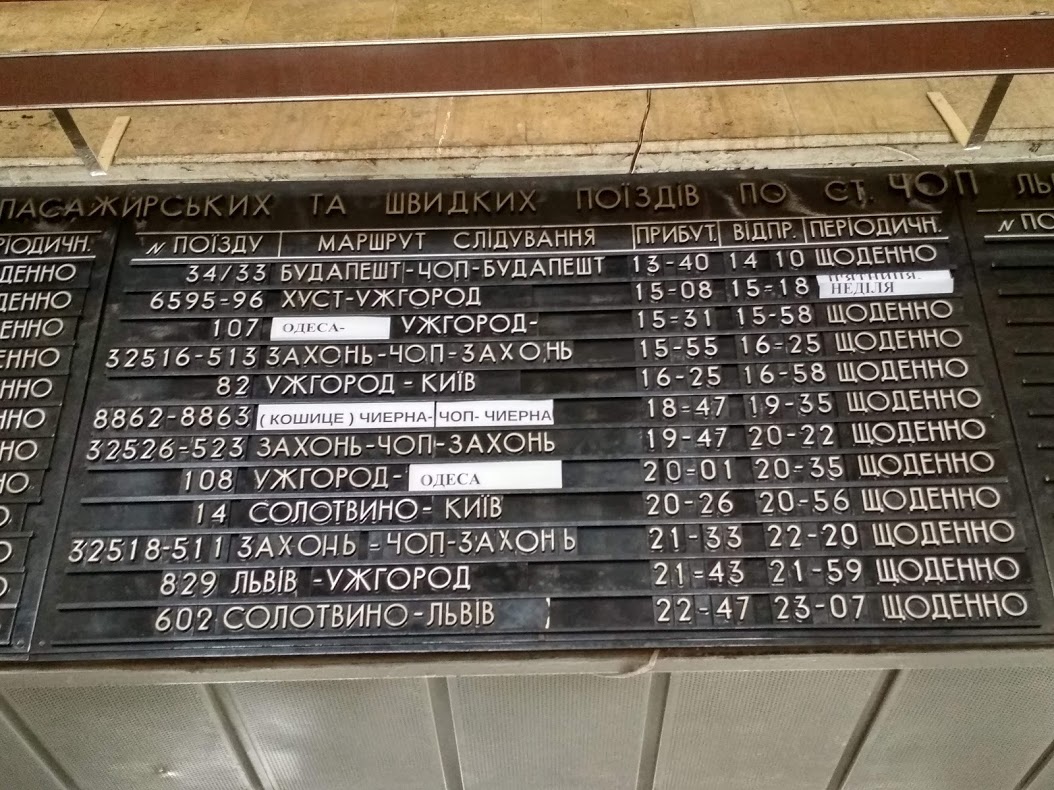 ПАСАЖИРСЬКИХ ТА ШВИДКИХ ПОЇЗДІВ ПО СТ. ЧОП ЛЬ
РІОДИЧН. N ПОЇЗДУ МАРШРУТ СЛІДУВАННЯ ПРИБУТ. ВІДПР. ПЕРІОДИЧН. N ПО
ЩОДЕННО 34/33 БУДАПЕШТ-ЧОП-БУДАПЕШТ 13-40 14 10 ЩОДЕННО
ДЕННО 6595-96 ХУСТ-УЖГОРОД 15-08 15-18 П'ЯТНИЦЯ. НЕДІЛЯ
ЕННО 107 ОДЕСА- УЖГОРОД- 15-31 15-58 ЩОДЕННО
ЕННО 32516-513 ЗАХОНЬ-ЧОП-ЗАХО,НЬ 15-55 16-25 ЩОДЕННО
ЕННО 82 УЖГОРОД-КИЇВ 16-25 16-58 ЩОДЕННО
ННО 8862-8863 ( КОШИЦЕ ) ЧИЕРНА- ЧОП- ЧИЕРНА 18-47 19-35 ЩОДЕННО
НО 32526-523 ЗАХОНЬ-ЧОП-ЗАХОНЬ 19-47 20-22 ЩОДЕННО
НО 108 УЖГОРОД- ОДЕСА 20-01 20-35 ЩОДЕННО
О. 14 СОЛОТВИНО- КИЇВ 20-26 20-56 ЩОДЕННО
О 32518-511 ЗАХОНЬ -ЧОП-ЗАХОНЬ 21-33 22-20 ЩОДЕННО
829 ЛЬВІВ -УЖГОРОД 21-43 21-59 ЩОДЕННО
602 СОЛОТВИНО-ЛЬВІВ 22-47 23-07 ЩОДЕННО